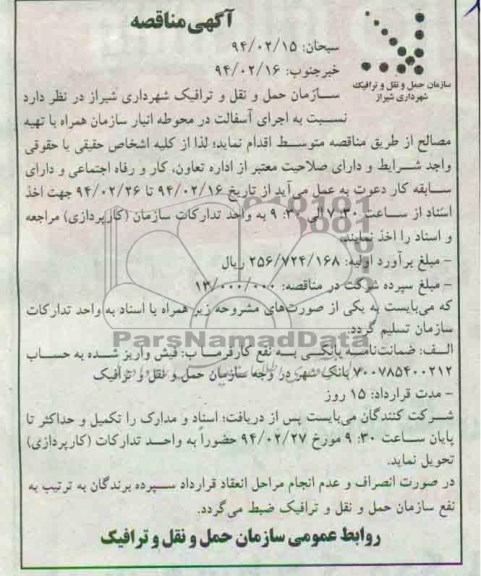 آگهی مناقصه
سبحان: ۹۴/۰۲/۱۵
خبرجنوب: ۹۴/۰۲/۱۶
سازمان حمل و نقل و ترافیک
شهرداری شیراز
سازمان حمل و نقل و ترافیک شهرداری شیراز در نظر دارد
نسبت به اجرای آسفالت در محوطه انبار سازمان همراه با تهیه
مصالح از طریق مناقصه متوسط اقدام نماید؛ لذا از کلیه اشخاص حقیقی یا حقوقی
واجد شرایط و دارای صلاحیت معتبر از اداره تعاون، کار و رفاه اجتماعی و دارای
سابقه کار دعوت به عمل می‌آید از تاریخ ۹۴/۰۲/۱۶ تا ۹۴/۰۲/۲۶ جهت اخذ
اسناد از ساعت ۷:۳۰ الی ۹:۳۰ به واحد تدارکات سازمان (کارپردازی) مراجعه
و اسناد را اخذ نمایند.
- مبلغ برآورد اولیه: ۲۵۶/۷۲۴/۱۶۸ ریال
- مبلغ سپرده شرکت در مناقصه: ۱۳/۰۰۰/۰۰۰
که می‌بایست به یکی از صورت‌های مشروحه زیر همراه با اسناد به واحد تدارکات
سازمان تسلیم گردد.
ParsNamadData
الف: ضمانت‌نامه بانکی به نفع کارفرما ب: فیش واریز شده به حساب
۷۰۰۷۸۵۴۰۰۲۱۲ بانک شهر در وجه سازمان حمل و نقل و ترافیک
- مدت قرارداد: ۱۵ روز
شرکت کنندگان می‌بایست پس از دریافت؛ اسناد و مدارک را تکمیل و حداکثر تا
پایان ساعت ۹:۳۰ مورخ ۹۴/۰۲/۲۷ حضوراً به واحد تدارکات (کارپردازی)
تحویل نماید.
در صورت انصراف و عدم انجام مراحل انعقاد قرارداد سپرده برندگان به ترتیب به
نفع سازمان حمل و نقل و ترافیک ضبط می‌گردد.
روابط عمومی سازمان حمل و نقل و ترافیک